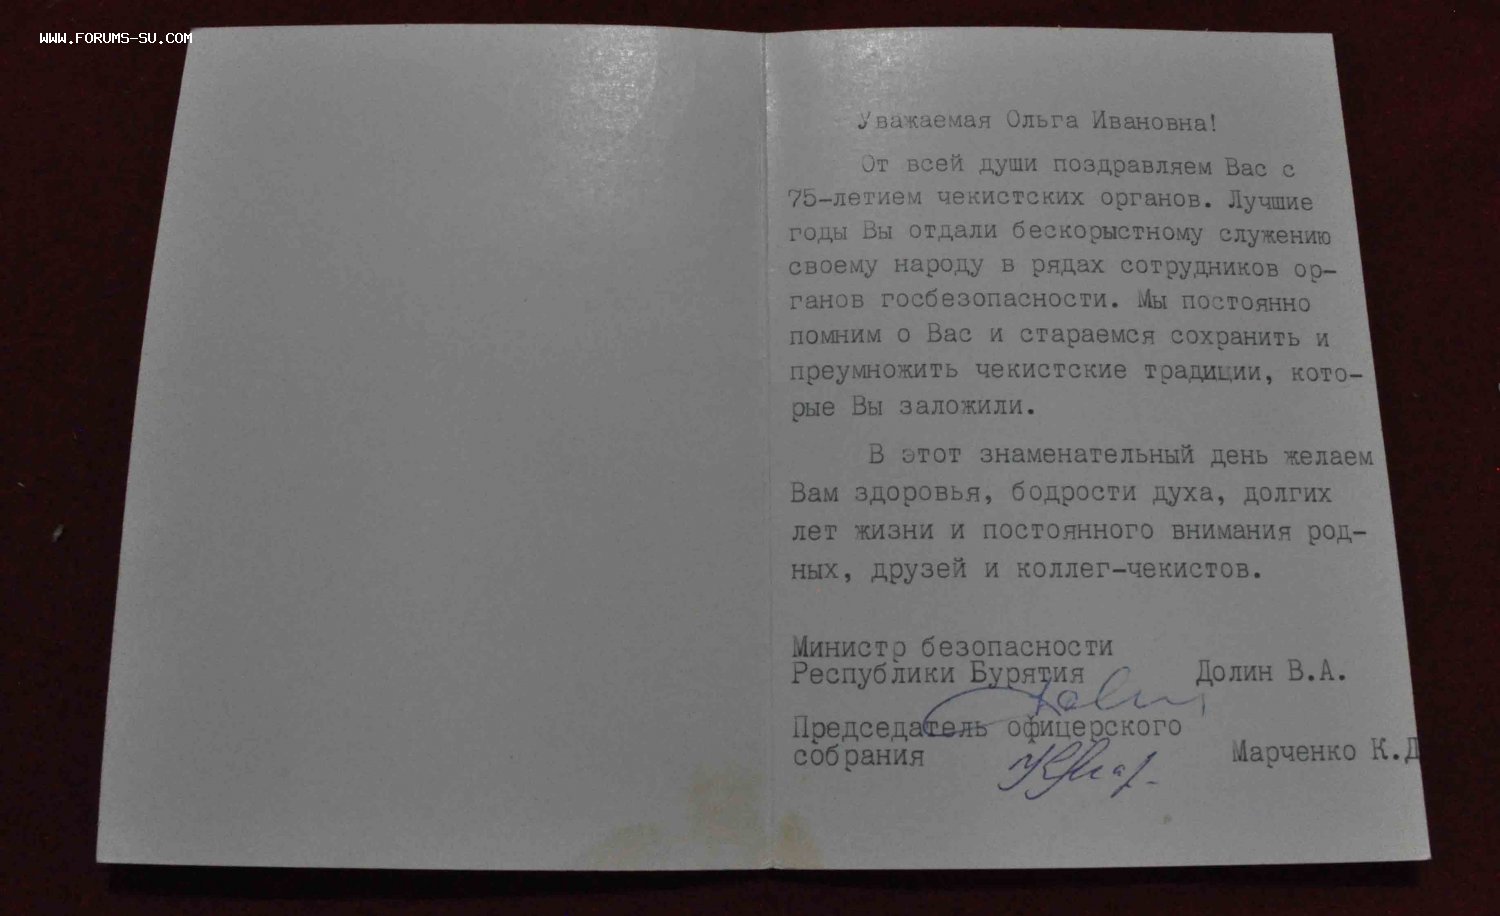 WWW.FORUMS-SU.COM
Уважаемая Ольга Ивановна!
От всей души поздравляем Вас с
75-летием чекистских органов. Лучшие
годы Вы отдали бескорыстному служению
своему народу в рядах сотрудников ор-
ганов госбезопасности. Мы постоянно
помним о Вас и стараемся сохранить и
преумножить чекистские традиции, кото-
рые Вы заложили.
В этот знаменательный день желаем
Вам здоровья, бодрости духа, долгих
лет жизни и постоянного внимания род-
ных, друзей и коллег-чекистов.
Министр безопасности
Республики Бурятия Долин В.А.
Председатель офицерского
собрания Марченко К.Д